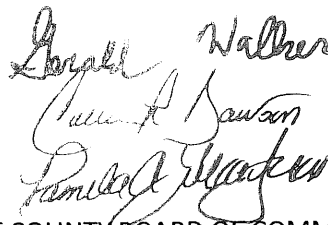 Gerald Walker
R Dawson
Pamela A
COUNTY BOARD OF COMM